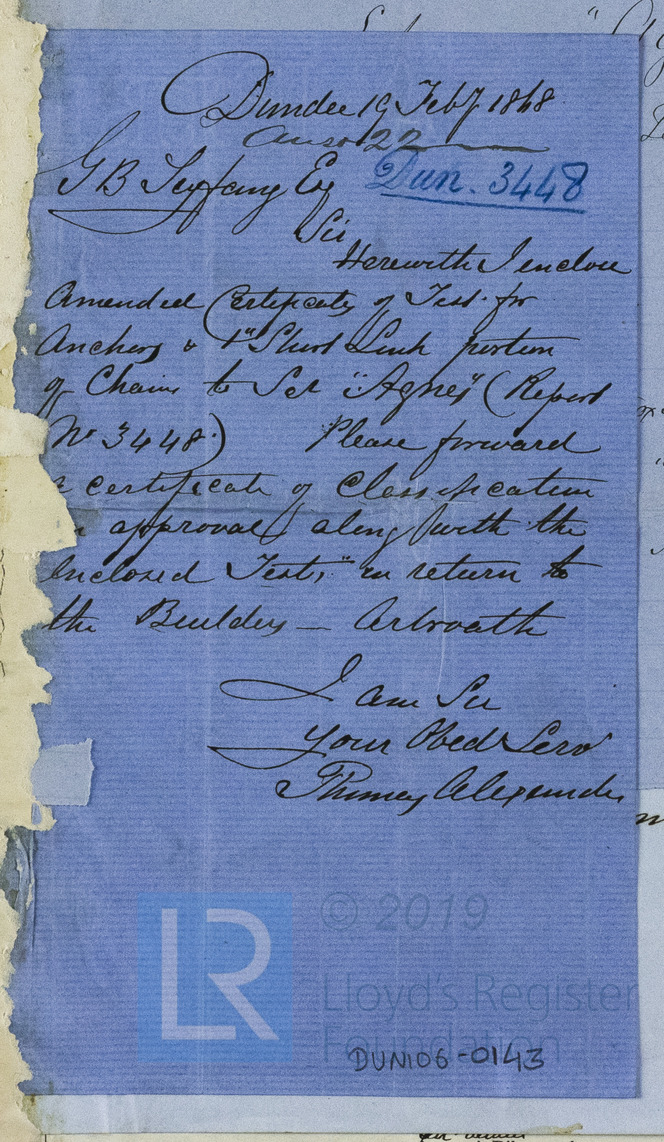 Dundee 19 Feby 1868
Ansd 22
G B Seyfang Esq Dun. 3448
Sir
Herewith I enclose
Amended Certificates of Test for
Anchors & 1" Short Link portion
of Chains to Scr "Agnes" (Report
No 3448.) Please forward
a certificate of Classification
approval along with the
Enclosed Tests, in return to
the Builders — Arbroath
I am Sir
Your Obed Serv
Thomas Alexander
© 2019
LR
Lloyd's Register
Foundation
DUN106-0143